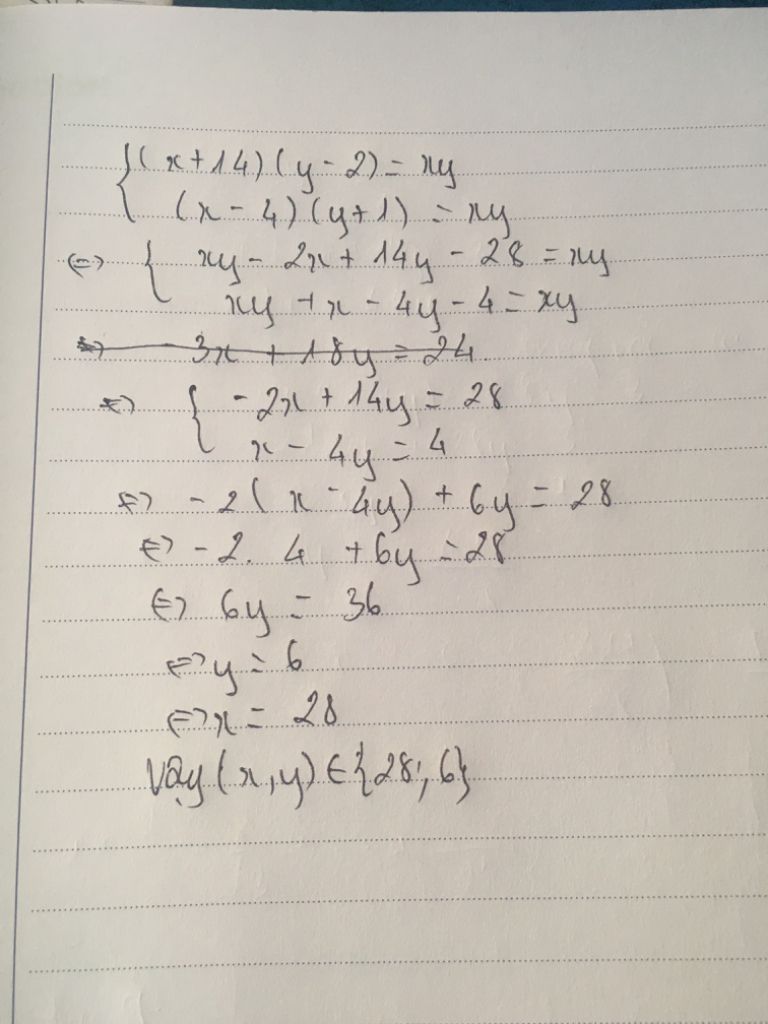 { (x+14)(y-2) = xy
(x-4)(y+1) = xy
<=> { xy - 2x + 14y - 28 = xy
xy + x - 4y - 4 = xy
=> - 3x + 18y = 24
<=> { -2x + 14y = 28
x - 4y = 4
<=> -2(x-4y) + 6y = 28
<=> -2. 4 + 6y = 28
<=> 6y = 36
<=> y = 6
<=> x = 28
Vậy (x,y) ∈ {28; 6}